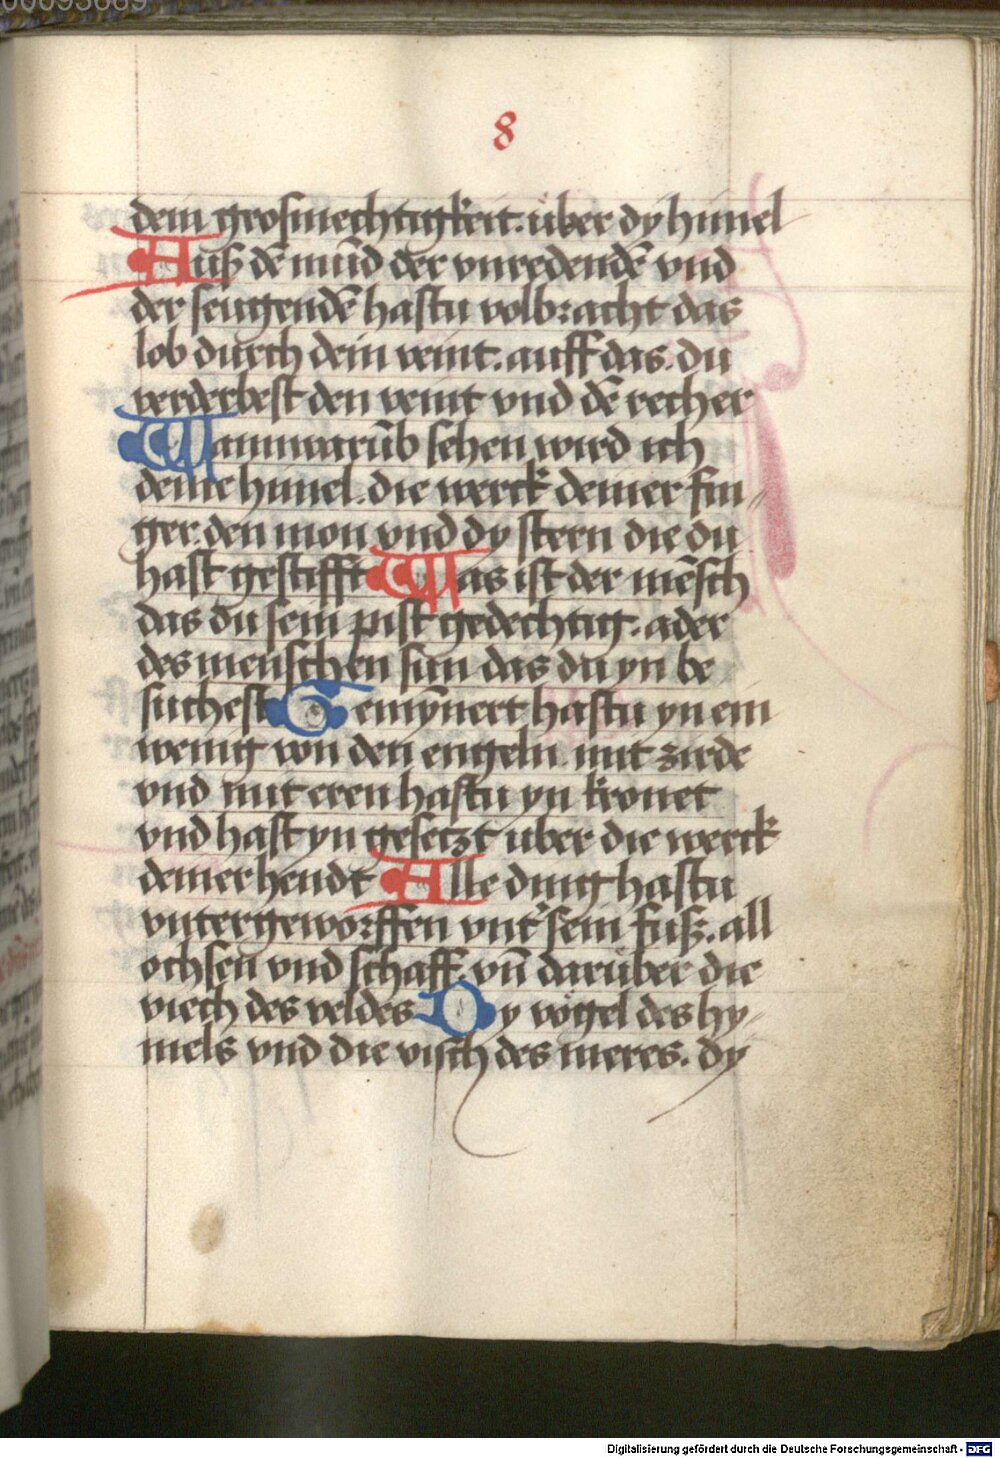 00095689
8
dein grosmechtigkeit. über dy himel
Auß dē mūd der vnredendē vnd
der seugendē hastu volbracht das
lob durch dein veint. auff das. du
verderbest den veint vnd dē recher
Wannwarūb sehen wird ich
deine himel. die werck deiner fin
ger. den mon vnd dy stern die du
hast gestifft Was ist der mēsch
das du sein pist gedechtig. ader
des menschen sun das du yn be
suchest Gemynert hastu yn ein
wenig von den engeln mit zirde
vnd mit eren hastu yn kronet
vnd hast yn gesetzt uber die werck
deiner hendt Alle ding hastu
vntergeworffen vnt' sein fuß. all
ochsen vnd schaff. vn̄ darüber die
viech des veldes Dy vögel des hy-
mels vnd die visch des meres. dy
Digitalisierung gefördert durch die Deutsche Forschungsgemeinschaft - DFG